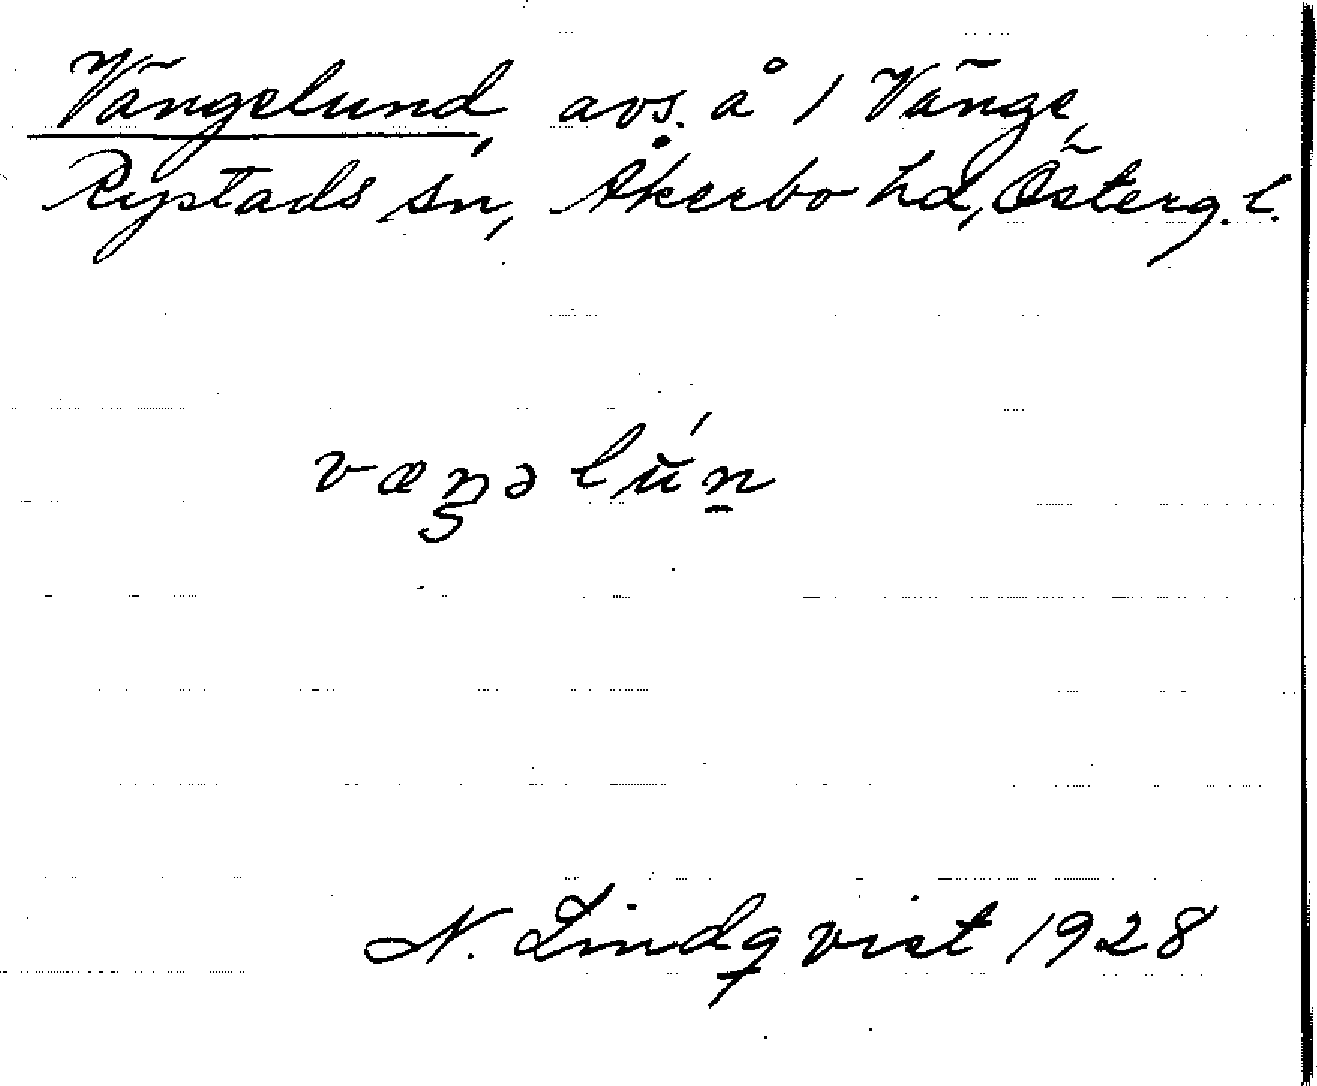 Vängelund, avs. å 1 Vänge,
Rystads sn, Åkerbo hd, Österg. l.
væŋəlún̲
N. Lindqvist 1928